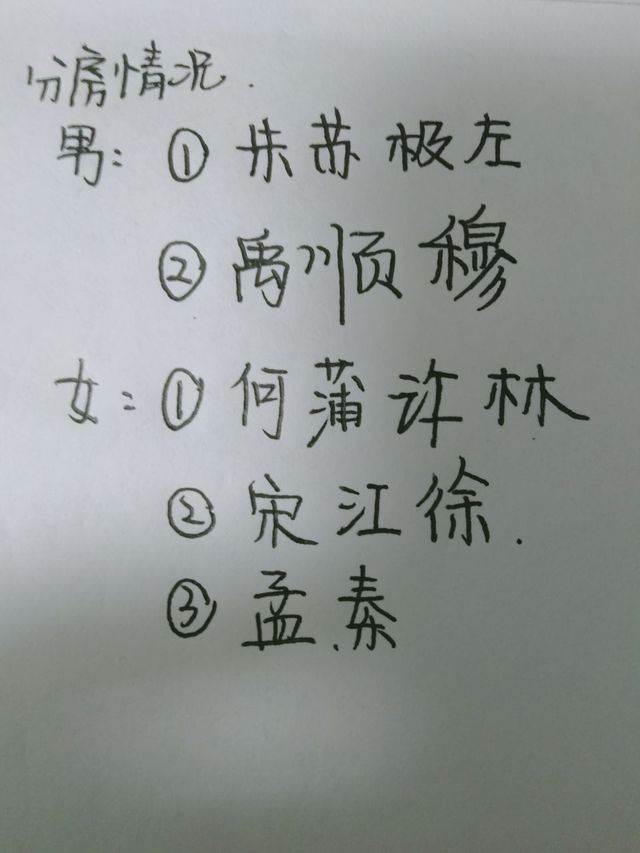 分房情况.
男：① 朱苏极左
② 禹顺穆
女：① 何蒲许林
② 宋江徐.
③ 孟.秦